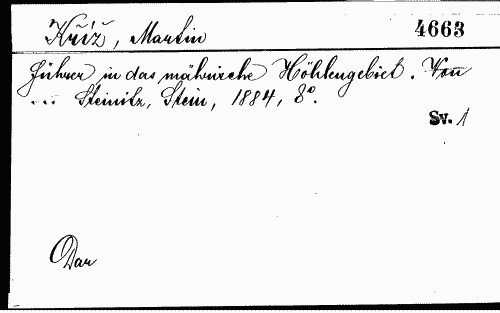 Kříž, Martin 4663
Führer in das mährische Höhlengebiet. Von
... Steinitz, Stein, 1884, 8°.
Sv. 1
Dar